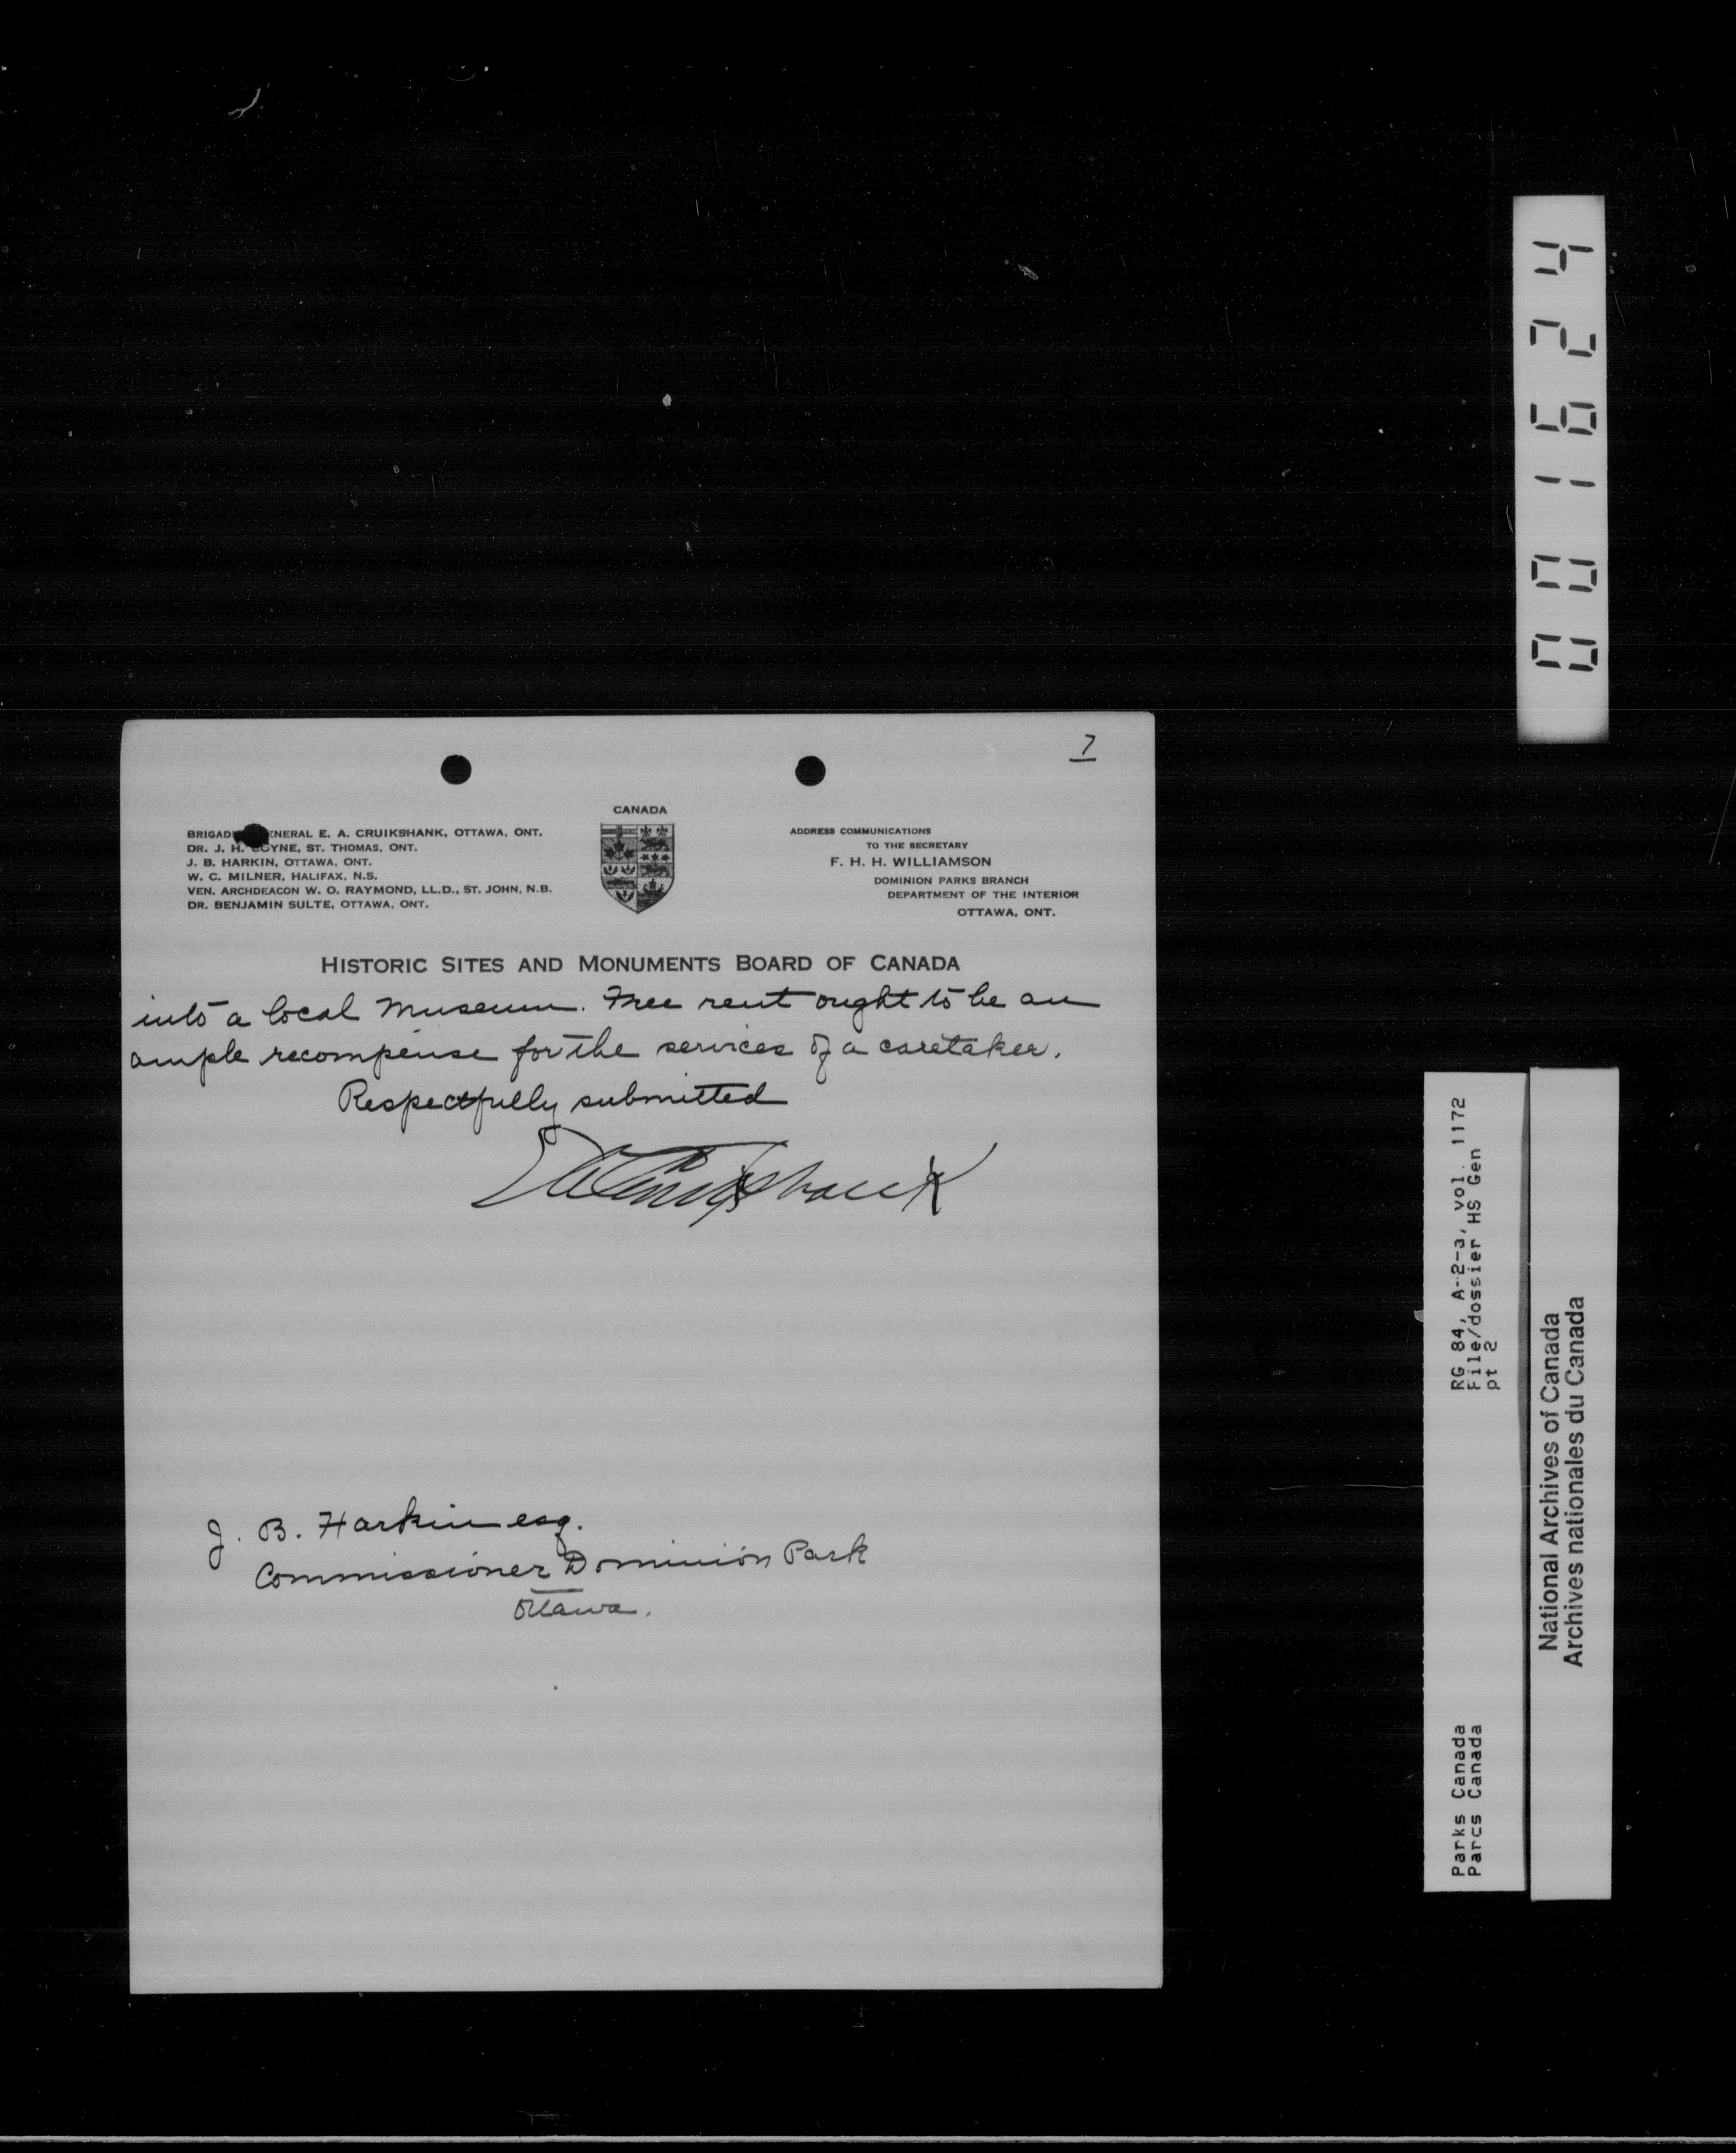 7
CANADA
BRIGADI ENERAL E. A. CRUIKSHANK, OTTAWA, ONT.
DR. J. H. COYNE, ST. THOMAS, ONT.
J. B. HARKIN, OTTAWA, ONT.
W. C. MILNER, HALIFAX, N.S.
VEN. ARCHDEACON W. O. RAYMOND, LL.D., ST. JOHN, N.B.
DR. BENJAMIN SULTE, OTTAWA, ONT.
ADDRESS COMMUNICATIONS
TO THE SECRETARY
F. H. H. WILLIAMSON
DOMINION PARKS BRANCH
DEPARTMENT OF THE INTERIOR
OTTAWA, ONT.
HISTORIC SITES AND MONUMENTS BOARD OF CANADA
into a local Museum. Free rent ought to be an
ample recompense for the services of a caretaker.
Respectfully submitted
E A Cruikshank
J. B. Harkin esq.
Commissioner Dominion Park
Ottawa.
001624
RG 84, A-2-3, vol. 1172
File/dossier HS Gen
pt 2
Parks Canada
Parcs Canada
National Archives of Canada
Archives nationales du Canada